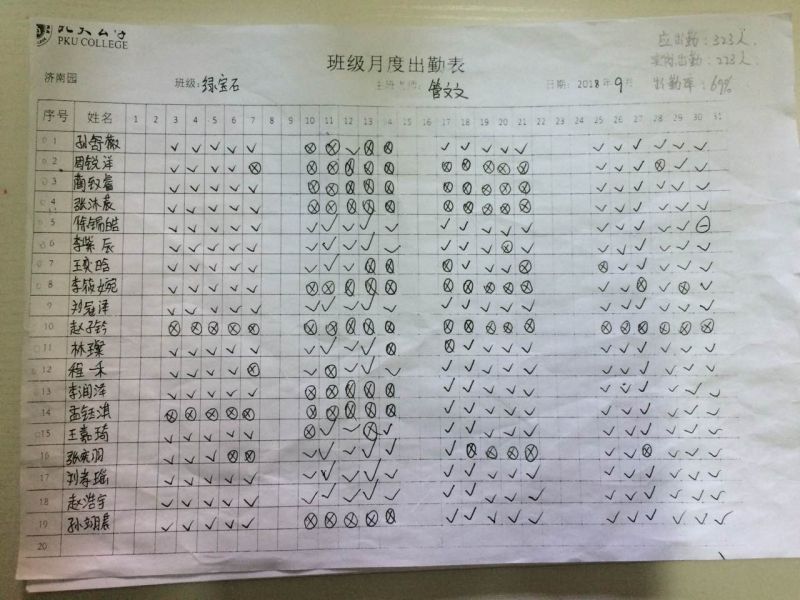 PKU COLLEGE
班级月度出勤表
应出勤：323人.
实际出勤：223人.
出勤率：69%
济南园 班级：绿宝石 管文文 日期：2018年9月
序号 姓名 1 2 3 4 5 6 7 8 9 10 11 12 13 14 15 16 17 18 19 20 21 22 23 24 25 26 27 28 29 30 31
1 孙舒薇 ✓ ✓ ✓ ✓ ✓ ⊗ ⊗ ✓ ⊗ ⊗ ✓ ✓ ✓ ✓ ✓ ✓ ✓ ✓ ✓ ✓ ✓
2 周锐洋 ✓ ✓ ✓ ✓ ⊗ ⊗ ⊗ ⊗ ⊗ ⊗ ⊗ ⊗ ⊗ ⊗ ⊗ ✓ ✓ ✓ ⊗ ✓ ✓
3 ✓ ✓ ✓ ✓ ✓ ⊗ ⊗ ⊗ ⊗ ⊗ ⊗ ⊗ ⊗ ⊗ ⊗ ✓ ✓ ✓ ✓ ✓ ✓
4 张沐宸 ✓ ✓ ✓ ✓ ✓ ⊗ ⊗ ⊗ ⊗ ⊗ ⊗ ⊗ ⊗ ⊗ ⊗ ✓ ✓ ✓ ✓ ✓ ✓
5 徐锡皓 ✓ ✓ ✓ ✓ ✓ ✓ ✓ ✓ ✓ ✓ ✓ ✓ ✓ ✓ ✓ ✓ ✓ ✓ ✓ ✓ ⊖
6 李紫辰 ✓ ✓ ✓ ✓ ✓ ✓ ✓ ✓ ✓ ✓ ✓ ✓ ✓ ⊗ ✓ ✓ ✓ ✓ ✓ ✓ ✓
7 王奕晗 ✓ ✓ ✓ ✓ ✓ ✓ ✓ ✓ ⊗ ⊗ ⊗ ✓ ✓ ✓ ⊗ ⊗ ✓ ✓ ✓ ✓ ✓
8 李筱婉 ✓ ✓ ✓ ✓ ✓ ⊗ ⊗ ⊗ ⊗ ⊗ ⊗ ⊗ ⊗ ⊗ ⊗ ✓ ✓ ⊗ ✓ ⊗ ✓
9 刘冠泽 ✓ ✓ ✓ ✓ ✓ ✓ ✓ ✓ ✓ ✓ ✓ ✓ ✓ ✓ ✓ ✓ ✓ ✓ ✓ ✓ ✓
10 赵子钤 ⊗ ⊗ ⊗ ⊗ ⊗ ⊗ ⊗ ⊗ ⊗ ⊗ ⊗ ⊗ ⊗ ⊗ ⊗ ⊗ ⊗ ⊗ ⊗ ⊗ ⊗
11 林璨 ✓ ✓ ✓ ✓ ✓ ✓ ✓ ✓ ✓ ⊗ ⊗ ✓ ✓ ✓ ✓ ✓ ✓ ✓ ✓ ✓ ✓
12 程一禾 ✓ ✓ ✓ ✓ ⊗ ✓ ⊗ ✓ ✓ ✓ ✓ ✓ ✓ ✓ ✓ ✓ ✓ ✓ ✓ ✓ ✓
13 李润泽 ✓ ✓ ✓ ✓ ✓ ⊗ ⊗ ⊗ ⊗ ⊗ ✓ ✓ ✓ ✓ ✓ ✓ ✓ ✓ ✓ ✓ ✓
14 孟钰淇 ⊗ ⊗ ⊗ ⊗ ⊗ ⊗ ⊗ ⊗ ⊗ ⊗ ✓ ✓ ✓ ✓ ✓ ✓ ✓ ✓ ✓ ✓ ✓
15 王嘉琦 ✓ ✓ ✓ ✓ ✓ ⊗ ✓ ✓ ⊗ ✓ ✓ ✓ ✓ ✓ ✓ ✓ ✓ ✓ ✓ ✓ ✓
16 张奕羽 ✓ ✓ ✓ ⊗ ⊗ ✓ ✓ ✓ ✓ ✓ ✓ ⊗ ⊗ ⊗ ⊗ ✓ ✓ ⊗ ✓ ✓ ✓
17 刘孝瑞 ✓ ✓ ✓ ✓ ✓ ✓ ✓ ✓ ✓ ✓ ✓ ✓ ✓ ✓ ✓ ✓ ✓ ✓ ✓ ✓ ✓
18 赵浩宇 ✓ ✓ ✓ ✓ ✓ ✓ ✓ ✓ ✓ ✓ ✓ ✓ ✓ ✓ ✓ ✓ ✓ ✓ ✓ ✓ ✓
19 孙翊宸 ✓ ✓ ✓ ✓ ✓ ⊗ ⊗ ⊗ ⊗ ⊗ ✓ ✓ ✓ ✓ ✓ ✓ ✓ ✓ ✓ ✓ ✓
20